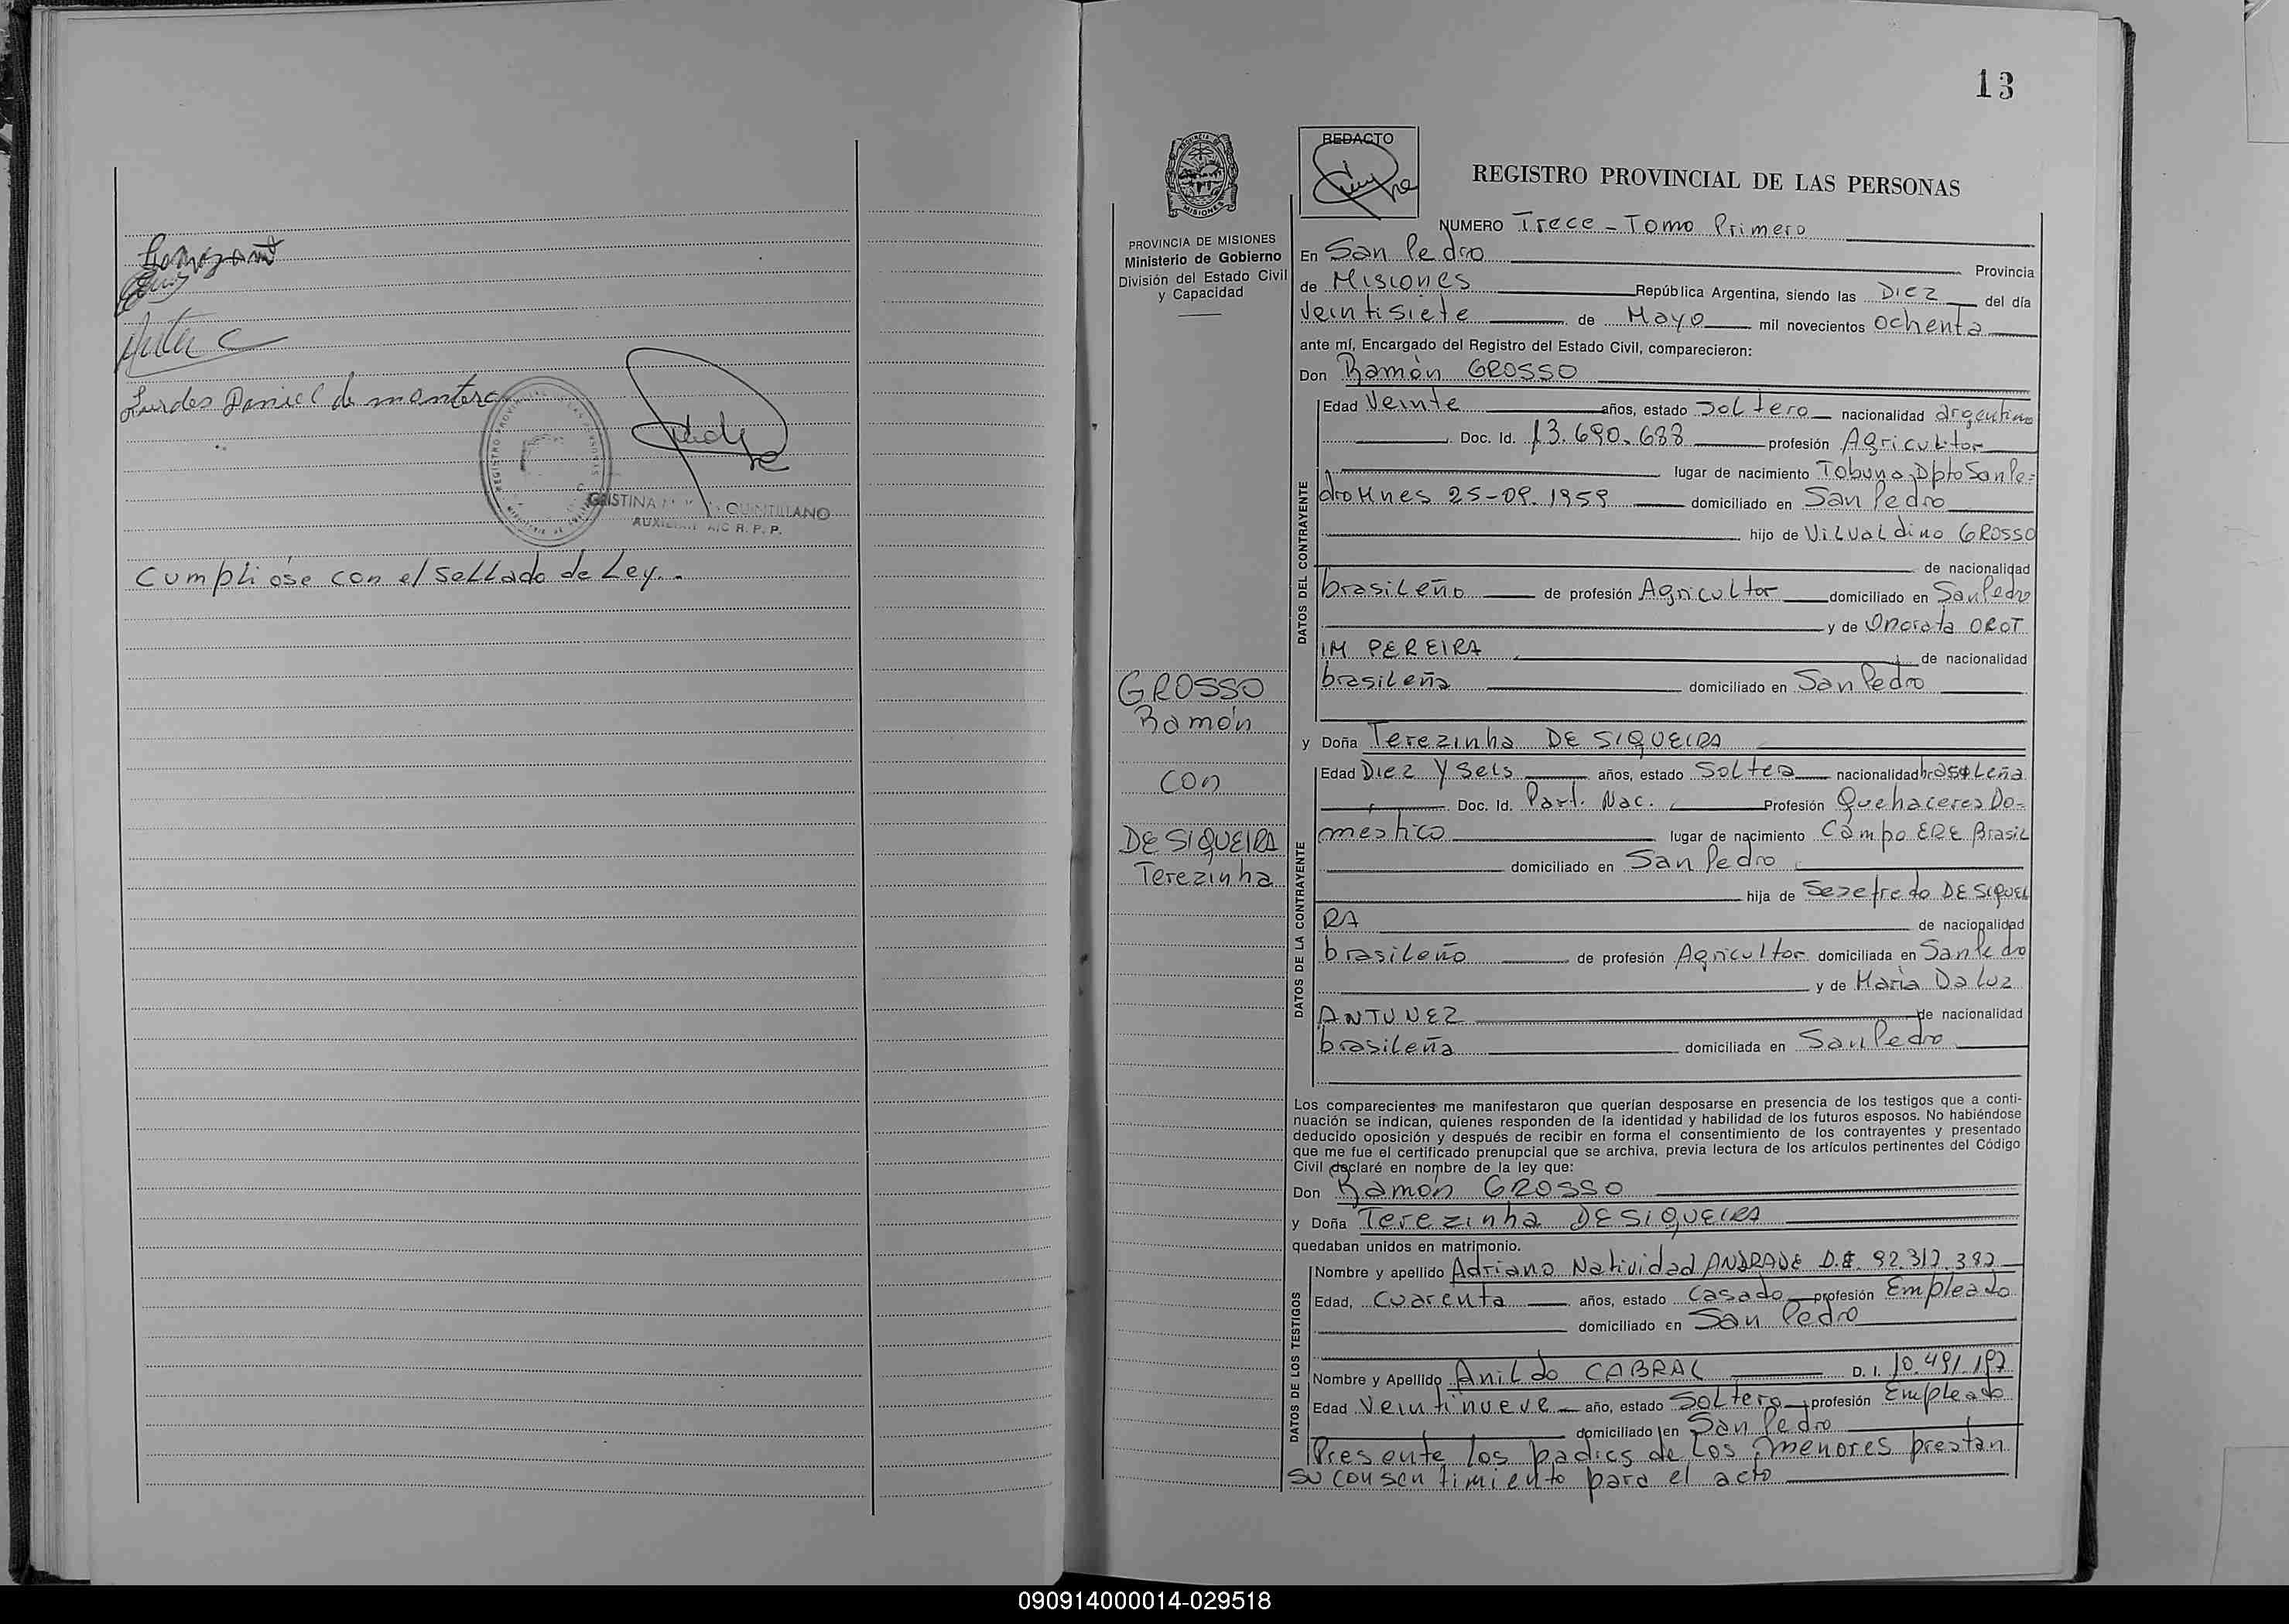 Lurdes Daniel de
REGISTRO PROVINCIAL
CRISTINA QUINTILLANO
AUXILIAR A/C R. P. P.
Cumplióse con el sellado de Ley.-
13
REDACTO
REGISTRO PROVINCIAL DE LAS PERSONAS
MISIONES
PROVINCIA DE MISIONES
Ministerio de Gobierno
División del Estado Civil
y Capacidad
GROSSO
Ramón
con
DE SIQUEIRA
Terezinha
NUMERO Trece - Tomo Primero
En San Pedro Provincia
de Misiones República Argentina, siendo las Diez del día
Veintisiete de Mayo mil novecientos ochenta
ante mí, Encargado del Registro del Estado Civil, comparecieron:
Don Ramón GROSSO
DATOS DEL CONTRAYENTE
Edad Veinte años, estado Soltero nacionalidad argentino
Doc. Id. 13.690.688 profesión Agricultor
lugar de nacimiento Tobuna Dpto San Pe=
dro Mnes 25-09-1959 domiciliado en San Pedro
hijo de Vilualdino GROSSO
de nacionalidad
brasileño de profesión Agricultor domiciliado en San Pedro
y de Onorata OROT
IM PEREIRA de nacionalidad
brasileña domiciliado en San Pedro
y Doña Terezinha DE SIQUEIRA
DATOS DE LA CONTRAYENTE
Edad Diez y Seis años, estado Soltera nacionalidad brasileña
Doc. Id. Part. Nac. Profesión Quehaceres Do-
mestico lugar de nacimiento Campo ERE Brasil
domiciliado en San Pedro
hija de Sezefredo DE SIQUEI
RA de nacionalidad
brasileño de profesión Agricultor domiciliada en San Pedro
y de Maria Da Luz
ANTUNEZ de nacionalidad
brasileña domiciliada en San Pedro
Los comparecientes me manifestaron que querían desposarse en presencia de los testigos que a conti-
nuación se indican, quienes responden de la identidad y habilidad de los futuros esposos. No habiéndose
deducido oposición y después de recibir en forma el consentimiento de los contrayentes y presentado
que me fue el certificado prenupcial que se archiva, previa lectura de los artículos pertinentes del Código
Civil declaré en nombre de la ley que:
Don Ramón GROSSO
y Doña Terezinha DE SIQUEIRA
quedaban unidos en matrimonio.
DATOS DE LOS TESTIGOS
Nombre y apellido Adriano Natividad ANDRADE D.I. 92.312.382
Edad, Cuarenta años, estado Casado profesión Empleado
domiciliado en San Pedro
Nombre y Apellido Anildo CABRAL D. I. 10.491.197
Edad Veintinueve año, estado Soltero profesión Empleado
domiciliado en San Pedro
Presente los padres de los menores prestan
su consentimiento para el acto
090914000014-029518